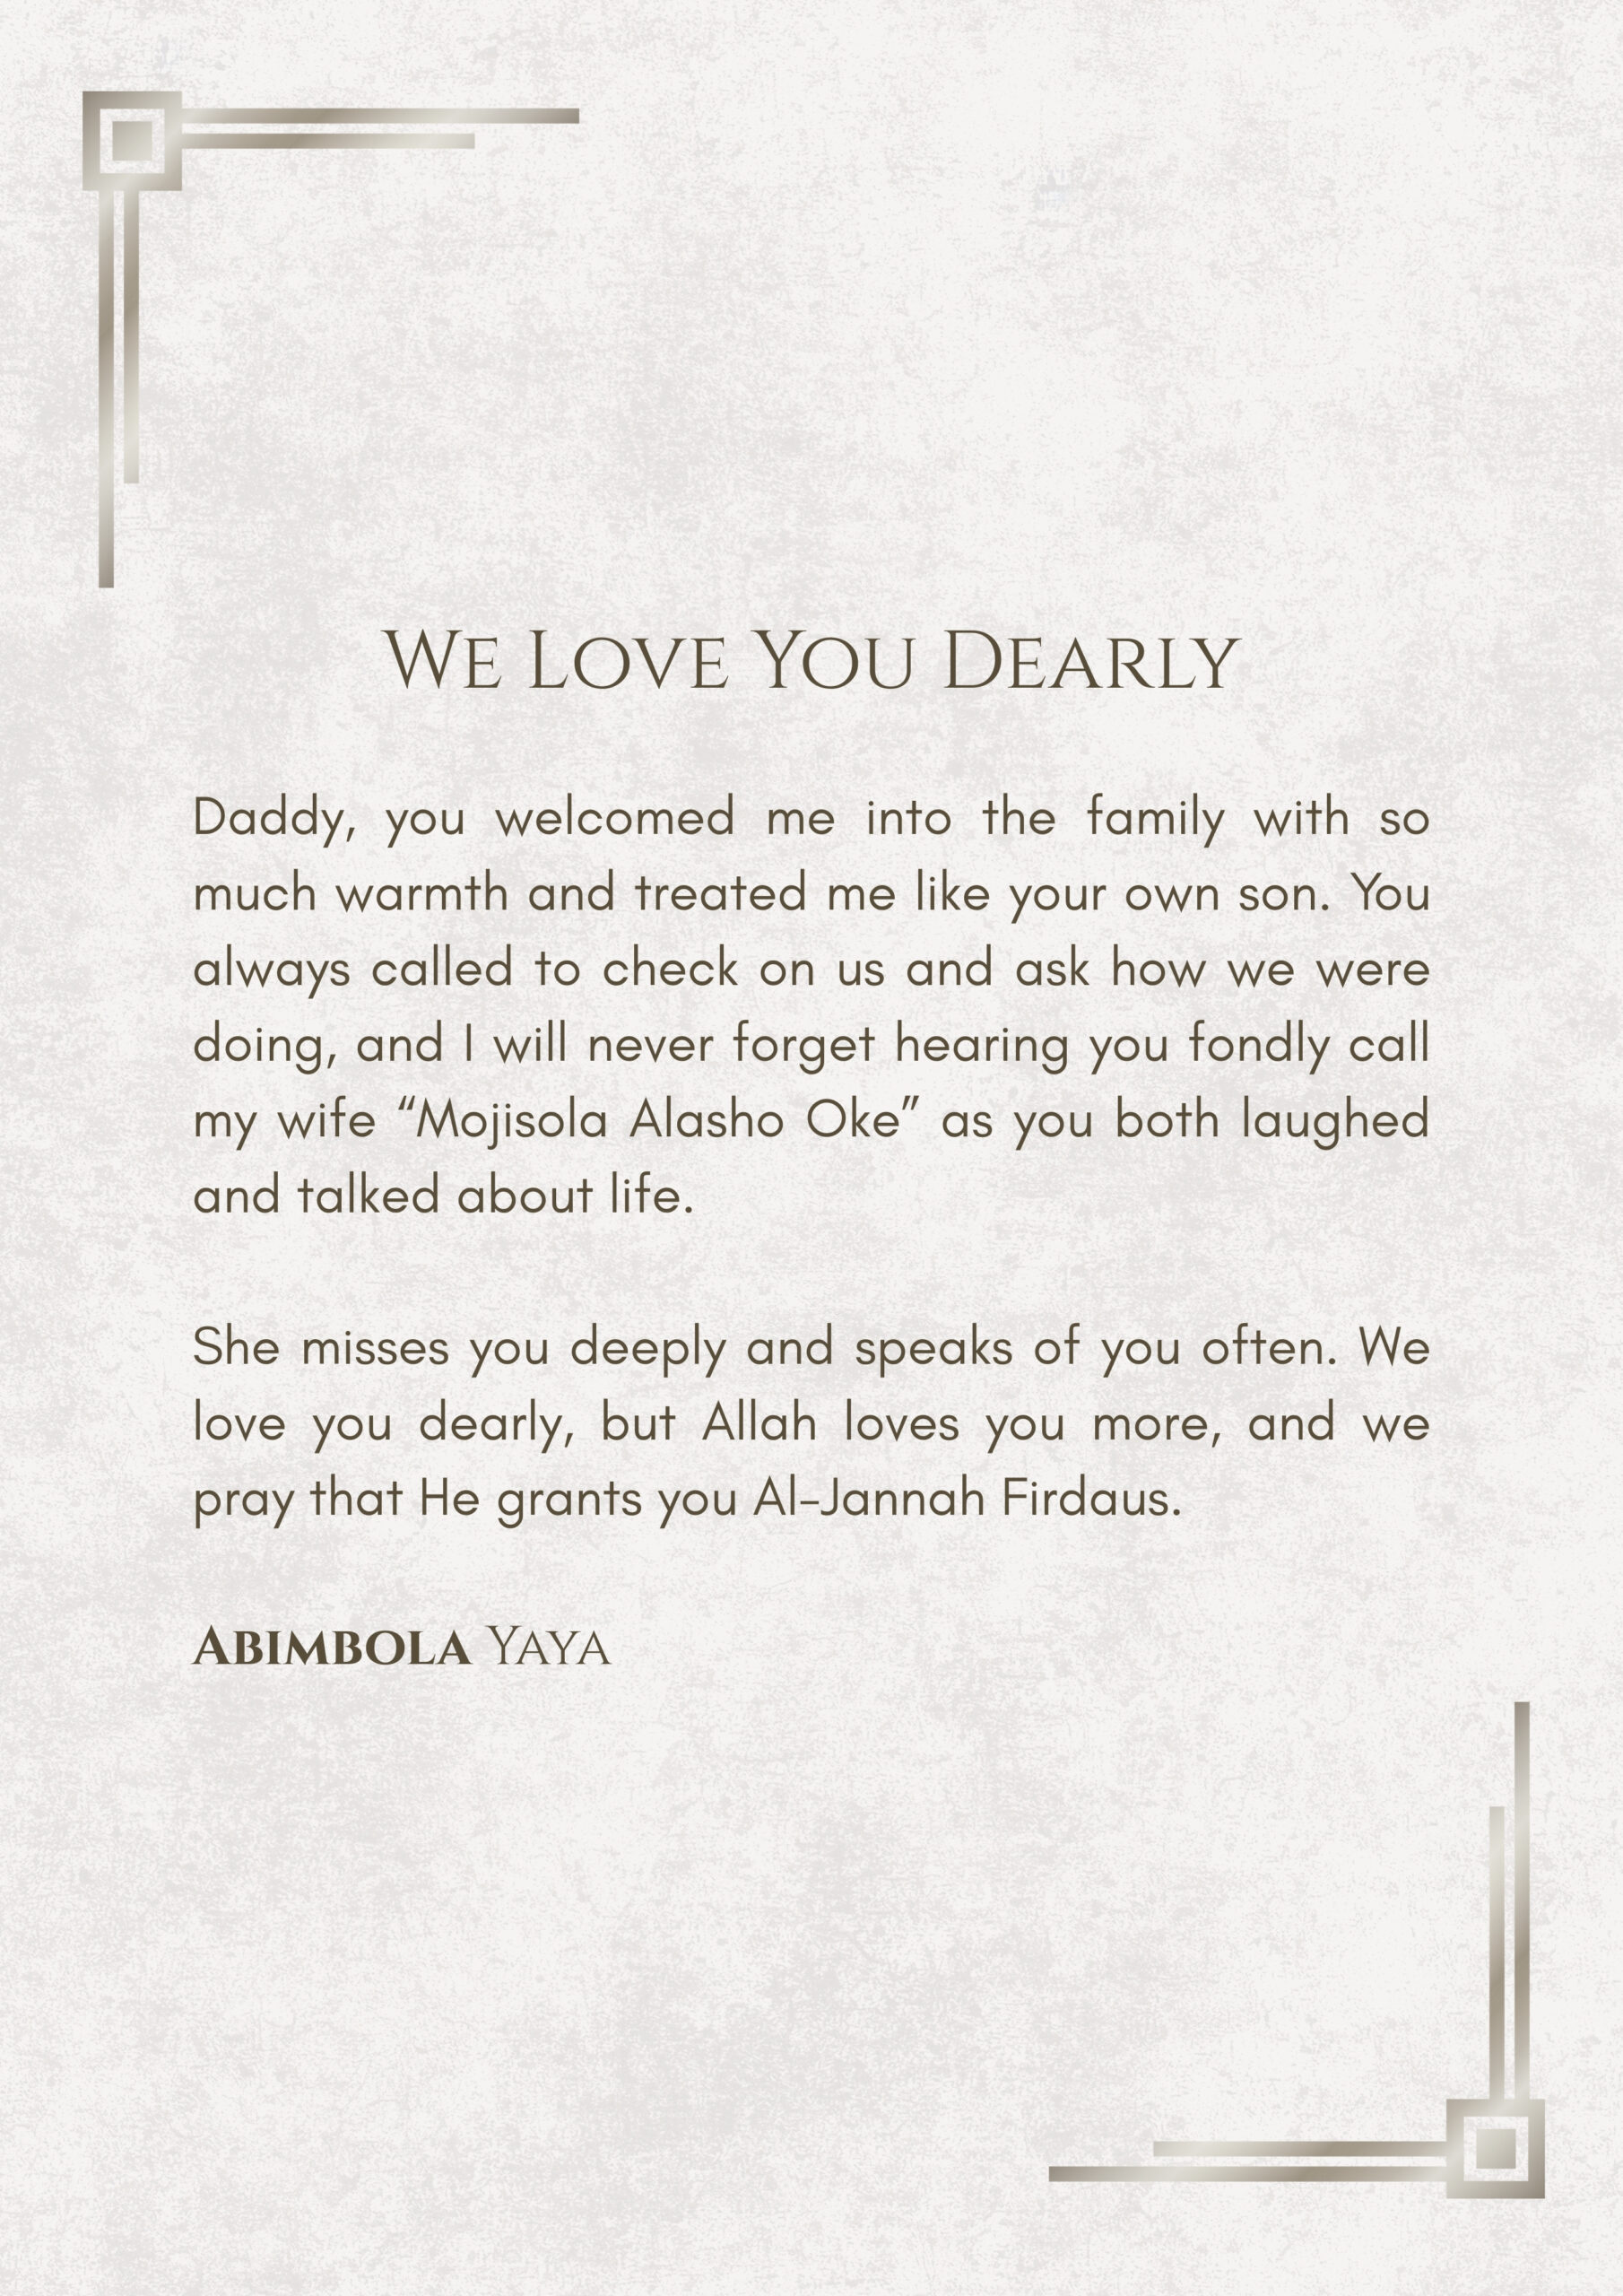 We Love You Dearly
Daddy, you welcomed me into the family with so
much warmth and treated me like your own son. You
always called to check on us and ask how we were
doing, and I will never forget hearing you fondly call
my wife “Mojisola Alasho Oke” as you both laughed
and talked about life.
She misses you deeply and speaks of you often. We
love you dearly, but Allah loves you more, and we
pray that He grants you Al-Jannah Firdaus.
Abimbola Yaya